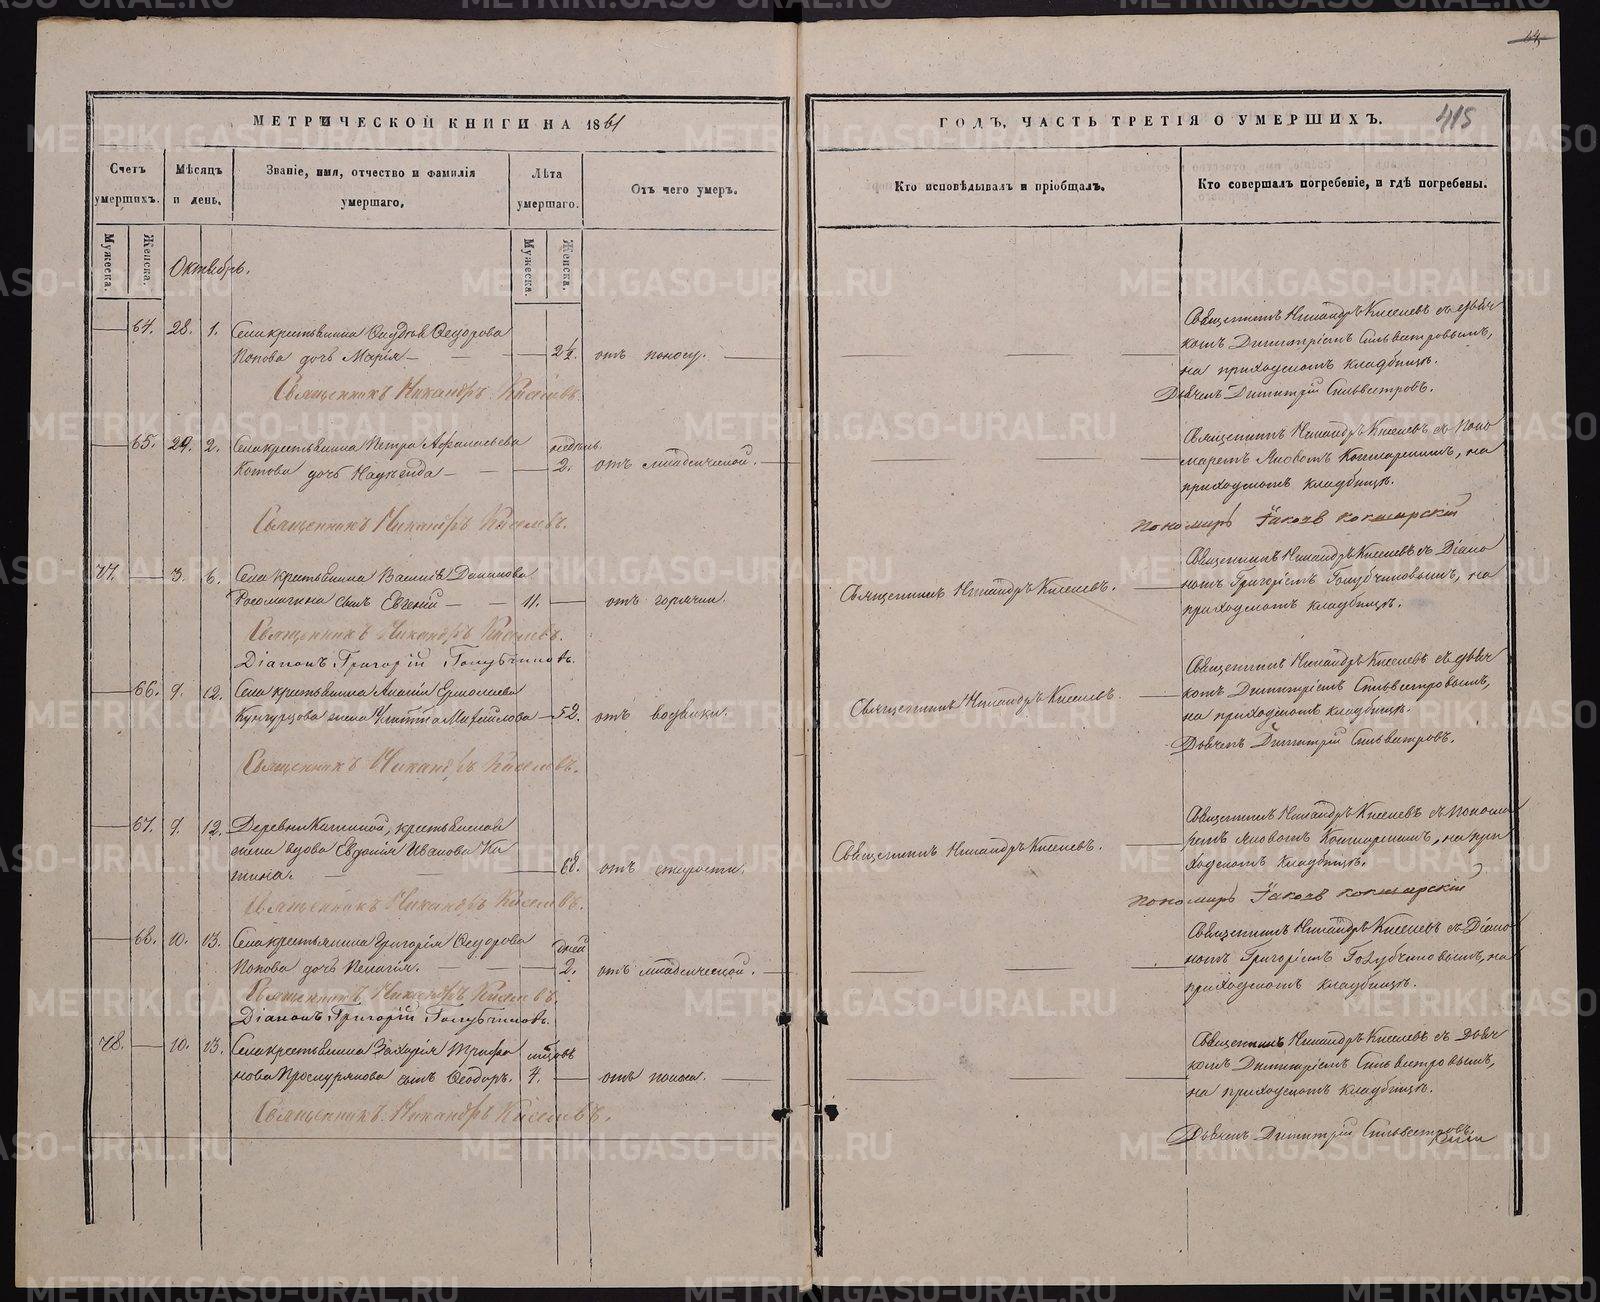 МЕТРИЧЕСКОЙ КНИГИ НА 1861
ГОДЪ, ЧАСТЬ ТРЕТІЯ О УМЕРШИХЪ.
415
Счетъ умершихъ.
Мѣсяцъ и день.
Званіе, имя, отчество и фамилія умершаго.
Лѣта умершаго.
Отъ чего умеръ.
Кто исповѣдывалъ и пріобщалъ.
Кто совершалъ погребеніе, и гдѣ погребены.
Мужеска.
Женска.
Мужеска.
Женска.
Октябрь.
64. 28. 1. Села крестьянина Ѳеодорова
Попова дочь Марія 2½ отъ поносу.
Священникъ Никандръ Киселевъ.
Священникъ Никандръ Киселевъ съ дьяч
комъ Димитріемъ Сильвестровымъ,
на приходскомъ кладбищѣ.
Дьячекъ Димитрій Сильвестровъ.
65. 29. 2. Села крестьянина Петра Афанасьева недѣль
Котова дочь Надежда 2. отъ младенческой.
Священникъ Никандръ Киселевъ.
Священникъ Никандръ Киселевъ съ Поно
маремъ Яковомъ Кокшарскимъ, на
приходскомъ кладбищѣ.
Пономарь Іаковъ Кокшарскій
77. 3. 6. Села крестьянина Василія
Росомагина сынъ Евгеній 11. отъ горячки.
Священникъ Никандръ Киселевъ.
Діаконъ Григорій Голубчиковъ.
Священникъ Никандръ Киселевъ.
Священникъ Никандръ Киселевъ съ Діако
номъ Григоріемъ Голубчиковымъ, на
приходскомъ кладбищѣ.
66. 9. 12. Села крестьянина Ананіи Ермолаева
Кунгурцова жена Михайлова 52. отъ водянки.
Священникъ Никандръ Киселевъ.
Священникъ Никандръ Киселевъ.
Священникъ Никандръ Киселевъ съ дьяч
комъ Димитріемъ Сильвестровымъ,
на приходскомъ кладбищѣ.
Дьячекъ Димитрій Сильвестровъ.
67. 9. 12. Деревни крестьянская
жена вдова Евдокія Иванова Ки
пина. 68. отъ старости.
Священникъ Никандръ Киселевъ.
Священникъ Никандръ Киселевъ.
Священникъ Никандръ Киселевъ съ Понома
ремъ Яковомъ Кокшарскимъ, на при
ходскомъ кладбищѣ.
Пономарь Іаковъ Кокшарскій
68. 10. 13. Села крестьянина Григорія Ѳедорова дней
Попова дочь Пелагія. 2. отъ младенческой.
Священникъ Никандръ Киселевъ.
Діаконъ Григорій Голубчиковъ.
Священникъ Никандръ Киселевъ съ Діако
номъ Григоріемъ Голубчиковымъ, на
приходскомъ кладбищѣ.
78. 10. 13. Села крестьянина Захарія Трифо
нова Проскурякова сынъ Ѳеодоръ. 4. отъ поноса.
Священникъ Никандръ Киселевъ.
Священникъ Никандръ Киселевъ съ Дьяч
комъ Димитріемъ Сильвестровымъ,
на приходскомъ кладбищѣ.
Дьячекъ Димитрій Сильвестровъ.
METRIKI.GASO-URAL.RU